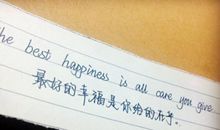 he best happiness is all care you give
最好的幸福是你给的在乎.